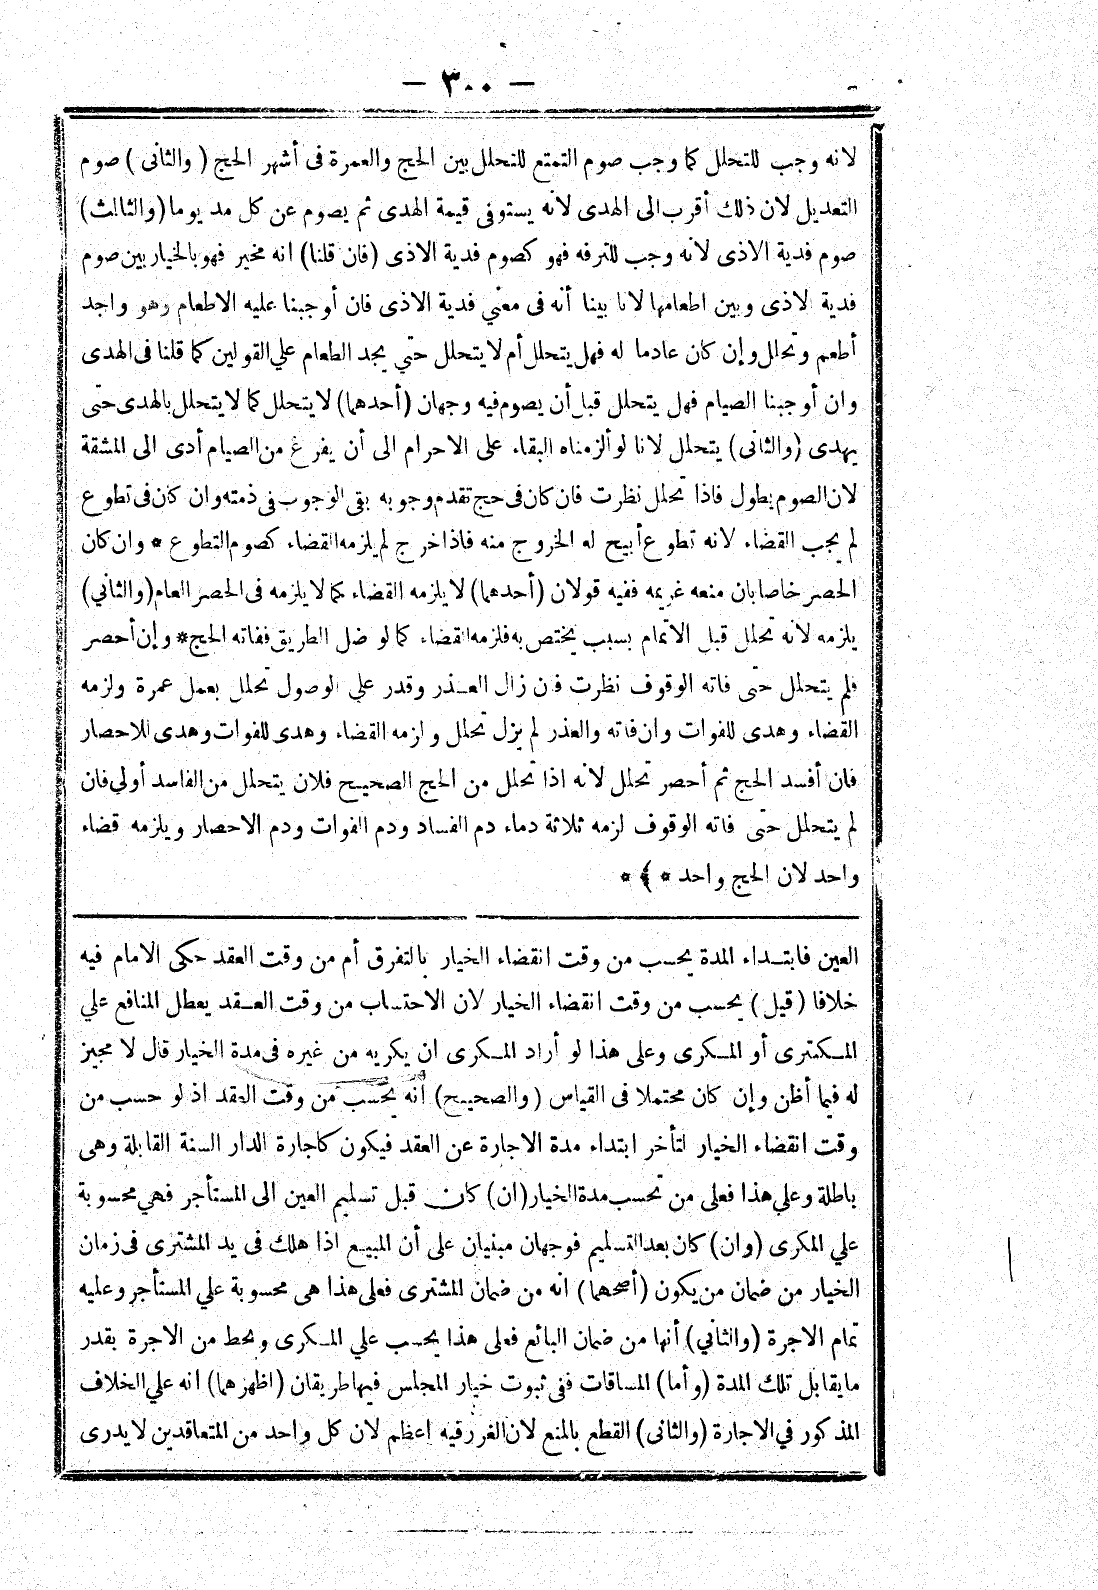 — ٣٠٠ —
لانه وجب للتحلل كما وجب صوم التمتع للتحلل بين الحج والعمرة فى أشهر الحج ( والثانى ) صوم
التعديل لان ذلك أقرب الى الهدى لانه يستوفى قيمة الهدى ثم يصوم عن كل مد يوما (والثالث)
صوم فدية الاذى لانه وجب للترفه فهو كصوم فدية الاذى (فان قلنا) انه مخير فهو بالخيار بين صوم
فدية الاذى وبين اطعامها لانا بينا أنه فى معني فدية الاذى فان أوجبنا عليه الاطعام وهو واجد
أطعم وتحلل وإن كان عادما له فهل يتحلل أم لا يتحلل حتي يجد الطعام علي القولين كما قلنا فى الهدى
وان أوجبنا الصيام فهل يتحلل قبل أن يصوم فيه وجهان (أحدهما) لا يتحلل كما لا يتحلل بالهدى حتى
يهدى (والثانى) يتحلل لانا لو ألزمناه البقاء على الاحرام الى أن يفرغ من الصيام أدى الى المشقة
لان الصوم يطول فاذا تحلل نظرت فان كان فى حج تقدم وجوبه بقى الوجوب فى ذمته وان كان فى تطوع
لم يجب القضاء لانه تطوع أبيح له الخروج منه فاذا خرج لم يلزمه القضاء كصوم التطوع * وان كان
الحصر خاصا بان منعه غريمه ففيه قولان (أحدهما) لا يلزمه القضاء كما لا يلزمه فى الحصر العام (والثاني)
يلزمه لانه تحلل قبل الاتمام بسبب يختص به فلزمه القضاء كما لو ضل الطريق ففاته الحج * وإن أحصر
فلم يتحلل حتى فاته الوقوف نظرت فان زال العـذر وقدر علي الوصول تحلل بعمل عمرة ولزمه
القضاء وهدى للفوات وان فاته والعذر لم يزل تحلل ولزمه القضاء وهدى للفوات وهدى للاحصار
فان أفسد الحج ثم أحصر تحلل لانه اذا تحلل من الحج الصحيح فلان يتحلل من الفاسد أولي فان
لم يتحلل حتى فاته الوقوف لزمه ثلاثة دماء دم الفساد ودم الفوات ودم الاحصار ويلزمه قضاء
واحد لان الحج واحد * ﴾ *
العين فابتـداء المدة يحسب من وقت انقضاء الخيار بالتفرق أم من وقت العقد حكى الامام فيه
خلافا ( قيل ) يحسب من وقت انقضاء الخيار لان الاحتساب من وقت العـقد يعطل المنافع علي
المـكترى أو المـكرى وعلى هذا لو أراد المـكرى ان يكريه من غيره فى مدة الخيار قال لا مجيز
له فيما أظن وإن كان محتملا فى القياس (والصحيح) أنه يحسب من وقت العقد اذ لو حسب من
وقت انقضاء الخيار لتأخر ابتداء مدة الاجارة عن العقد فيكون كاجارة الدار السنة القابلة وهى
باطلة وعلي هذا فعلى من تحسب مدة الخيار (ان) كان قبل تسليم العين الى المستأجر فهي محسوبة
علي المكرى (وان) كان بعد التسليم فوجهان مبنيان على أن المبيع اذا هلك فى يد المشترى فى زمان
الخيار من ضمان من يكون (أصحهما) انه من ضمان المشترى فعلى هذا هى محسوبة علي المستأجر وعليه
تمام الاجرة (والثاني) أنها من ضمان البائع فعلى هذا يحسب علي المـكرى ويحط من الاجرة بقدر
ما يقابل تلك المدة (وأما) المساقات ففى ثبوت خيار المجلس فيها طريقان (اظهرهما) انه علي الخلاف
المذكور في الاجارة (والثانى) القطع بالمنع لان الغرر فيه اعظم لان كل واحد من المتعاقدين لا يدرى